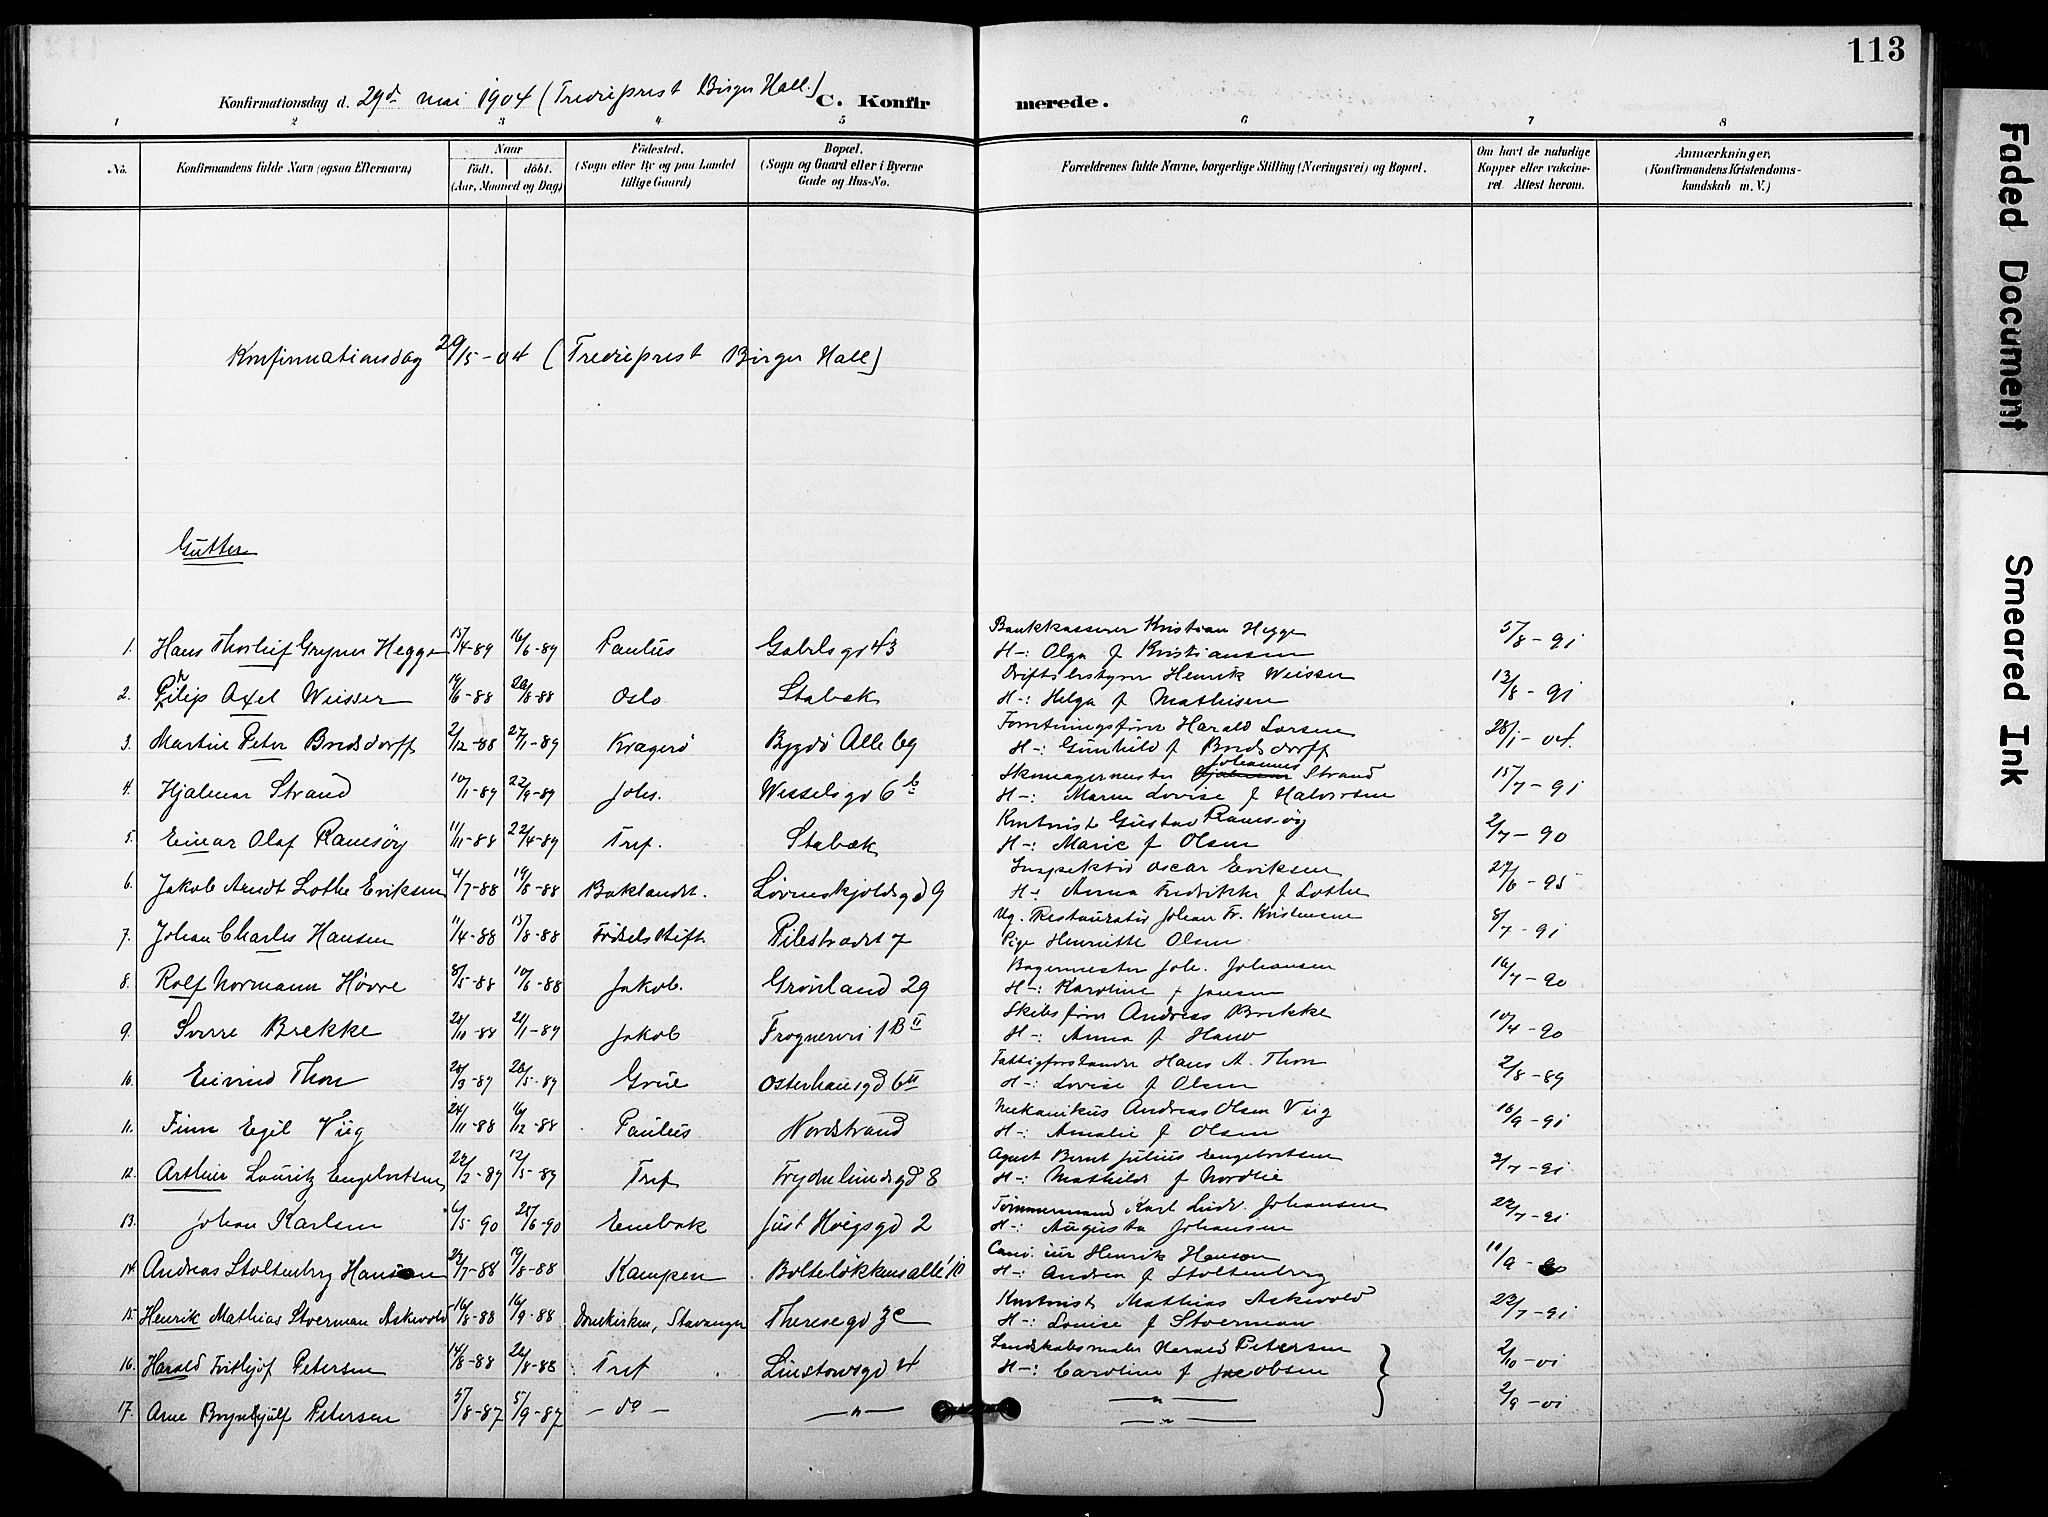 113
Konfirmationsdag d. 29d mai 1904 (Tredieprest Birger Hall) C. Konfir merede.
1 2 3 4 5 6 7 8
No. Konfirmandens fulde Navn (ogsaa Efternavn) Naar födt. döbt. (Aar, Maaned og Dag) Födested. (Sogn eller By og paa Landet tillige Gaard) Bopæl. (Sogn og Gaard eller i Byerne Gade og Hus-No. Forældrenes fulde Navne, borgerlige Stilling (Næringsvei) og Bopæl. Om havt de naturlige Kopper eller vakcineret. Attest herom. Anmærkninger, (Konfirmandens Kristendomskundskab m. V.)
Konfirmationsdag 29/5-04 (Tredieprest Birger Hall)
Gutter
Bankkasserer Kristian Hegge
1. Hans Thorleif Hegge 15/4-89 16/6-89 Paulus Gabelsgd 43 H-: Olga f Kristiansen 5/8-91
Driftsbestyrer Henrik Weisser
2. Filip Axel Weisser 14/6-88 Oslo Stabæk H-: Helga f Mathisen 13/8-91
Forretningsfører Harald Larsen
3. Martin Peter Bredsdorff 2/12-88 27/1-89 Kragerö Bygdö Alle 69 H-: Gunhild f Bredsdorff 28/1-04.
Skomagermester Johannes Strand
4. Hjalmar Strand 10/1-89 22/9-89 Johs. Wesselsgd 6b H-: Maren Lovise f Halvorsen 15/7-91
Kontorist Gustav Ramsöy
5. Einar Olaf Ramsöy 11/11-88 22/4-89 Tref. Stabæk H-: Marie f Olsen 2/7-90
Inspektör Oscar Eriksen
6. Jakob Arndt Lothe Eriksen 4/7-88 19/8-88 Baklandet. Lövenskjoldsgd 9 H-: Anna Fredrikke f Lothe 27/6-95
Ug. Restauratör Johan Fr. Kristensen
7. Johan Charles Hansen 11/4-88 15/8-88 Födselsstift Pilestrædet 7 Pige Henriette Olsen 8/7-91
Bagermester Joh. Johansen
8. Rolf Normann Hovre 8/5-88 10/6-88 Jakob. Grönland 29 H-: Karoline f Jansen 16/7-90
Skibsförer Andreas Brekke
9. Sverre Brekke 21/1-89 Jakob Frognervei 1 B II H-: Anna f 10/4-90
Fattigforstander Hans A. Thon
10. Eivind Thon 28/3-89 26/5-89 Grue Osterhausgd 6 II H-: Lovise f Olsen 2/8-89
Mekanikus Andreas Olsen Viig
11. Finn Egil Viig 24/11-88 16/12-88 Paulus Nordstrand H-: Amalie f Olsen 16/9-91
Agent Bernt Julius Engebretsen
12. Arthur Lauritz Engebretsen 12/5-89 Tref Frydenlundsgd 8 H-: Mathilde f Nordlie 3/7-91
Tömmermand Karl Ludv. Johansen
13. Johan Karlsen 6/5-90 25/6-90 Enebak Just Höigsgd 2 H-: Augusta Johansen 22/7-91
Cand. jur Henrik Hansen
14. Andreas Stoltenberg Hansen 23/7-88 19/8-88 Kampen Bolteløkkens allé 10 H-: Andrea f Stoltenberg
Kontorist Mathias Askevold
15. Henrik Mathias Stoerman Askevold 16/8-88 16/9-88 Domkirken, Stavanger Theresegd 3c H-: Louise f Stoerman 22/7-91
Landskabsmaler Harald Petersen
16. Harald Fritthjof Petersen 14/8-88 26/8-88 Tref Linstowsgd 4 H-: Caroline f Jacobsen 2/10-01
17. Arne Brynhjulf Petersen 5/8-87 5/9-87 - do - -"- -"- -"- 2/9-01
Faded Document
Smeared Ink